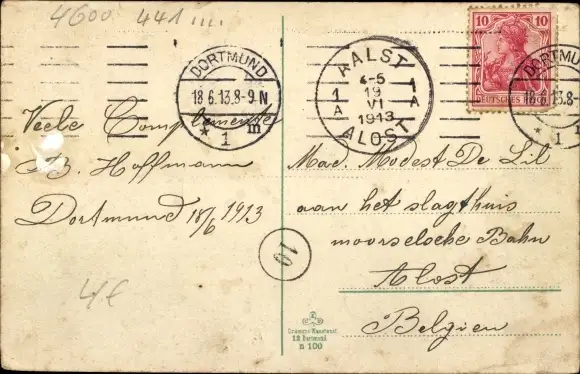 4600 441
10 10
DEUTSCHES REICH
DORTMUND
18.6.13.8-9.N
* 1 m
AALST
4-5
1A 19 1A
VI
1913
ALOST
DORTMUND
18.6.13.8-
* 1
Veele Complementen
B. Hoffmann
Dortmund 18/6 1913
4€
Mad. Modest De Lil
aan het slagthuis
moorselsche Bahn
Alost
Belgien
10
12 Dortmund
n 100